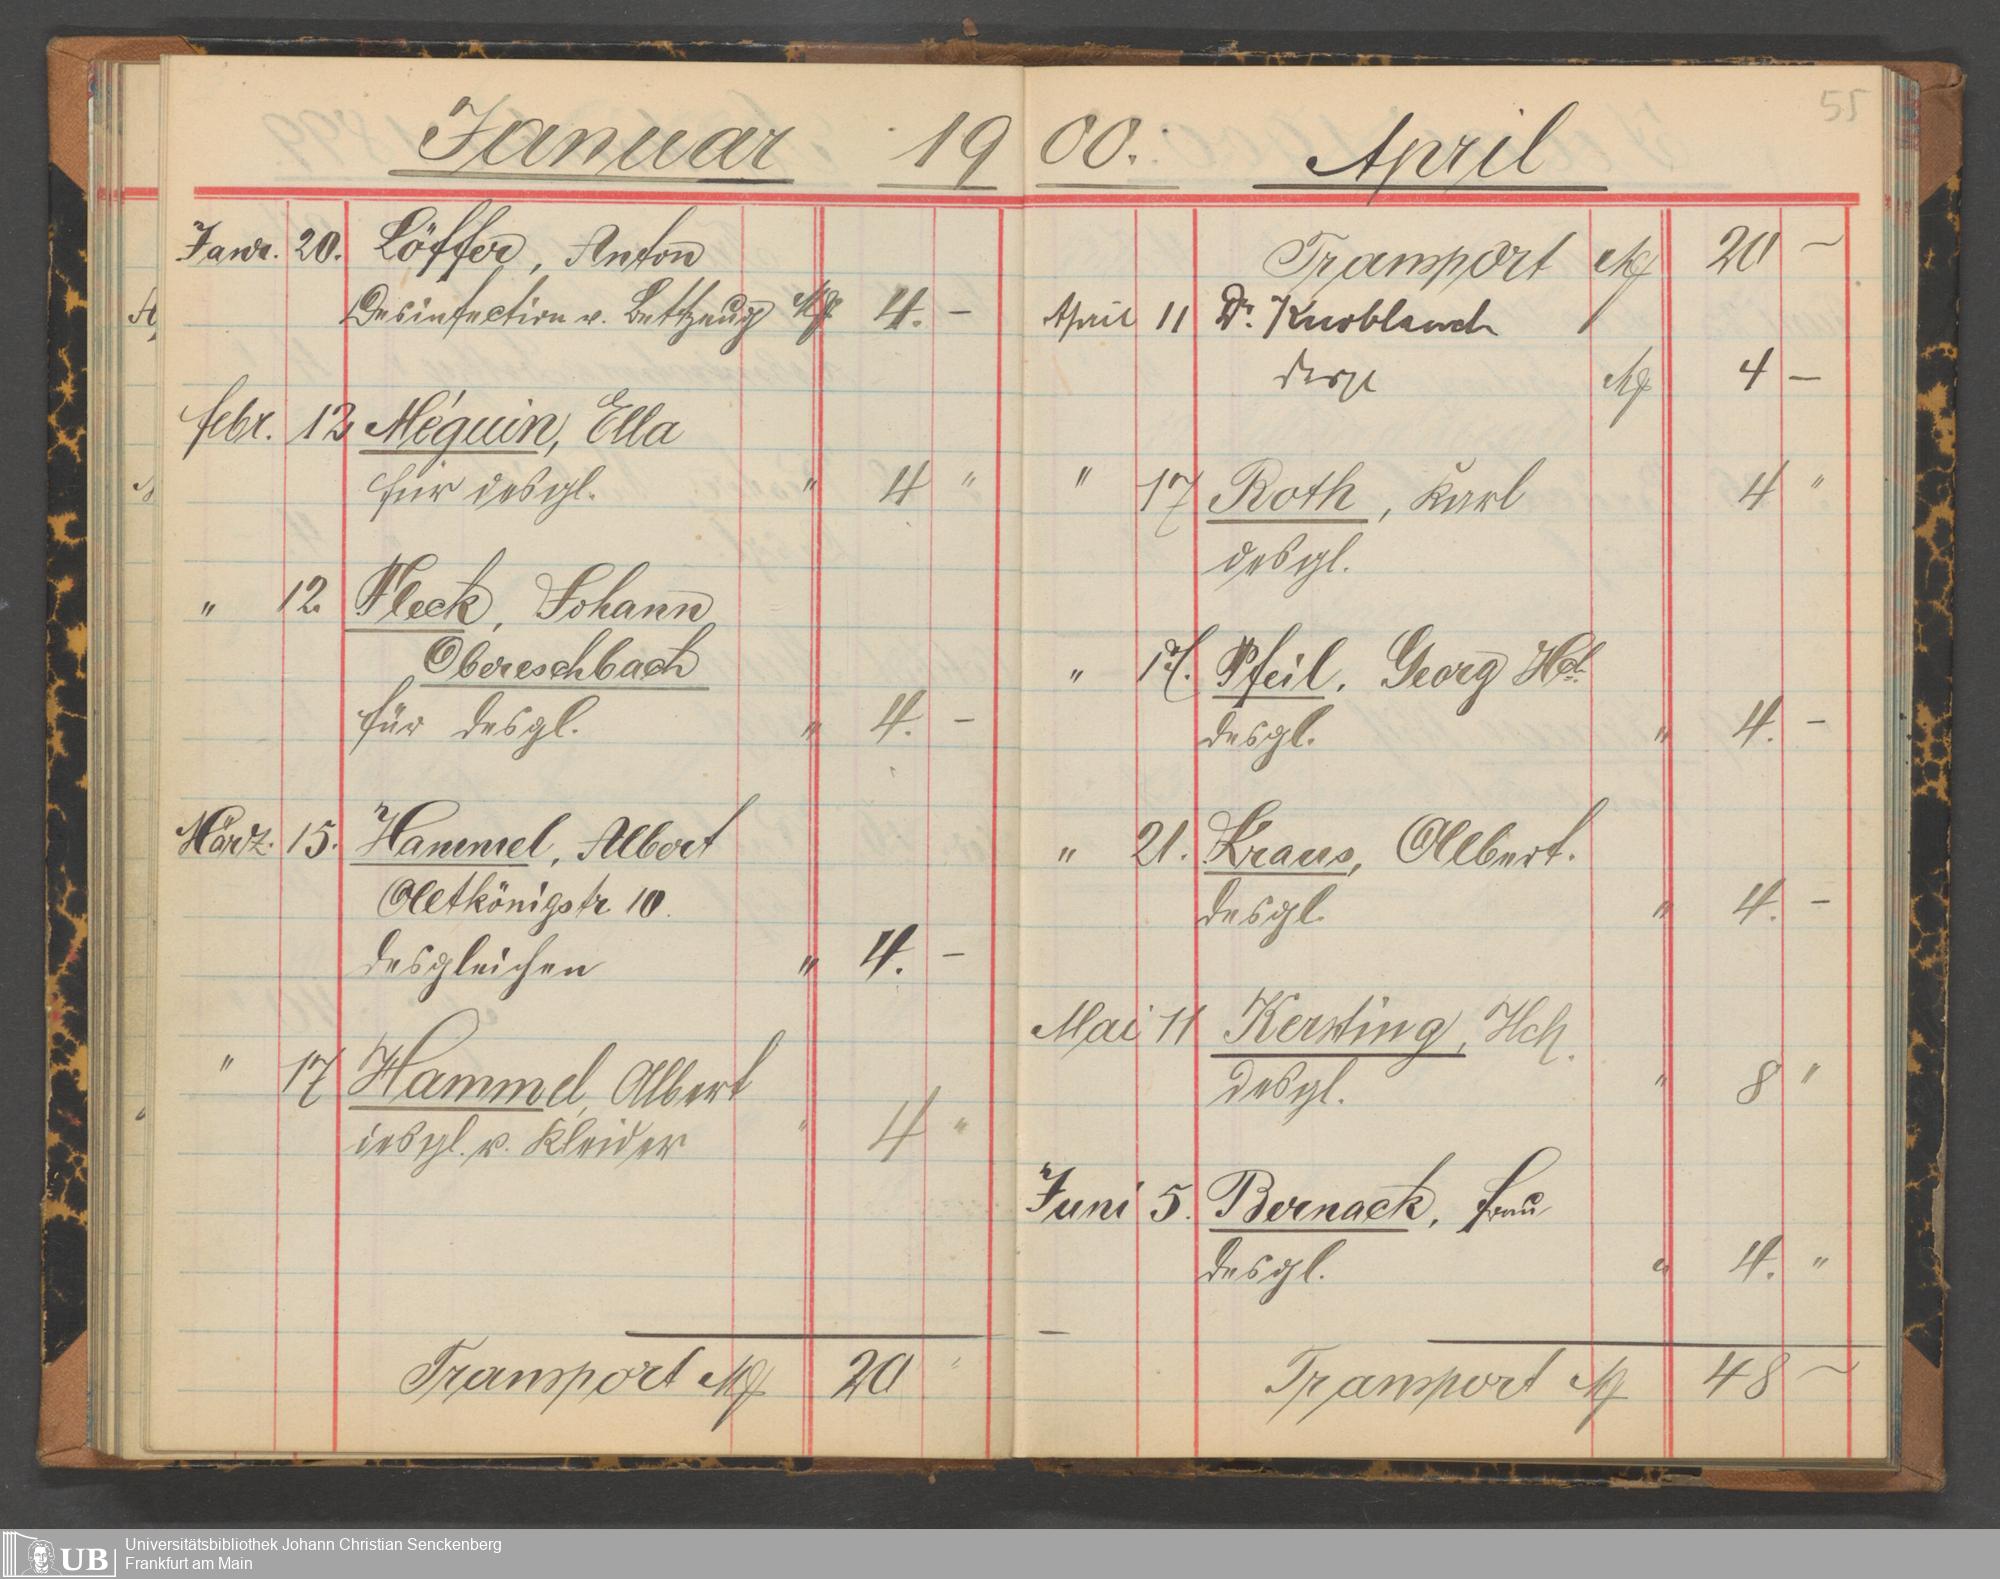 Januar 19
Janr. 20. Löffer, Anton
Desinfection v. Bettzeug Mk 4. –
Febr. 12 Méguin, Ella
für desgl. " 4 "
" 12. Fleck, Johann
Obereschbach
für desgl. " 4. –
März. 15. Hammel, Albert
Altkönigstr. 10.
desgleichen " 4. –
" 17 Hammel, Albert
desgl. v. Kleider " 4 "
Transport Mk 20 "
55
00. April
Transport Mk 20 –
April 11 Dr. Knoblauch
Mk 4 –
" 17 Roth, Karl 4 "
desgl.
" 17. Pfeil, Georg Hch.
desgl. " 4. –
" 21. Kraus, Albert.
desgl. " 4. –
Mai 11 Kersting, Hch.
desgl. " 8 "
Juni 5. Bernack, Frau
desgl. " 4. "
Transport Mk 48 –
UB
Universitätsbibliothek Johann Christian Senckenberg
Frankfurt am Main